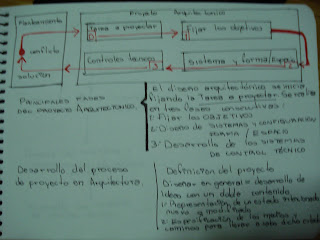 Planteamiento
Proyecto Arquitectónico
Tarea a proyectar
0
Fijar los objetivos
1
conflicto
Controles técnicos
3
sistema y forma/Espacio
2
solución
PRINCIPALES FASES
DEL PROYECTO ARQUITECTÓNICO.
el diseño arquitectónico se inicia
fijando la tarea a proyectar
en tres fases consecutivas:
1º Fijar los OBJETIVOS
2º Diseño de SISTEMAS Y CONFIGURACIÓN
FORMA / ESPACIO
3º Desarrollo de los SISTEMAS
DE CONTROL TÉCNICO
Desarrollo del proceso
de proyecto en Arquitectura.
Definición del proyecto
Diseñar en general = desarrollo de
ideas con un doble contenido
1) Representación de un estado intencionado
nuevo y modificado
2) Especificación de los medios y
caminos para llegar a este dicho estado